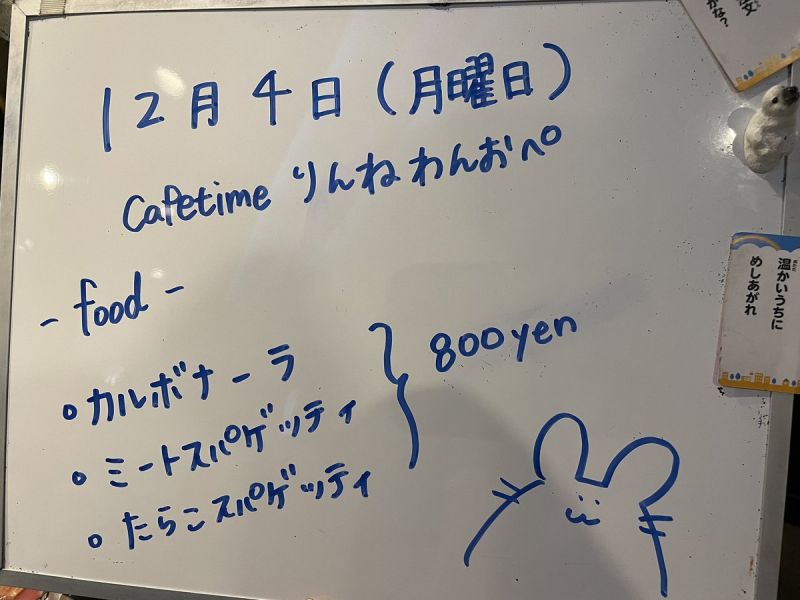 12月4日(月曜日)
Cafetime りんねわんおぺ
- food -
・カルボナーラ
・ミートスパゲッティ
・たらこスパゲッティ
800yen
温かいうちに
めしあがれ
かな?